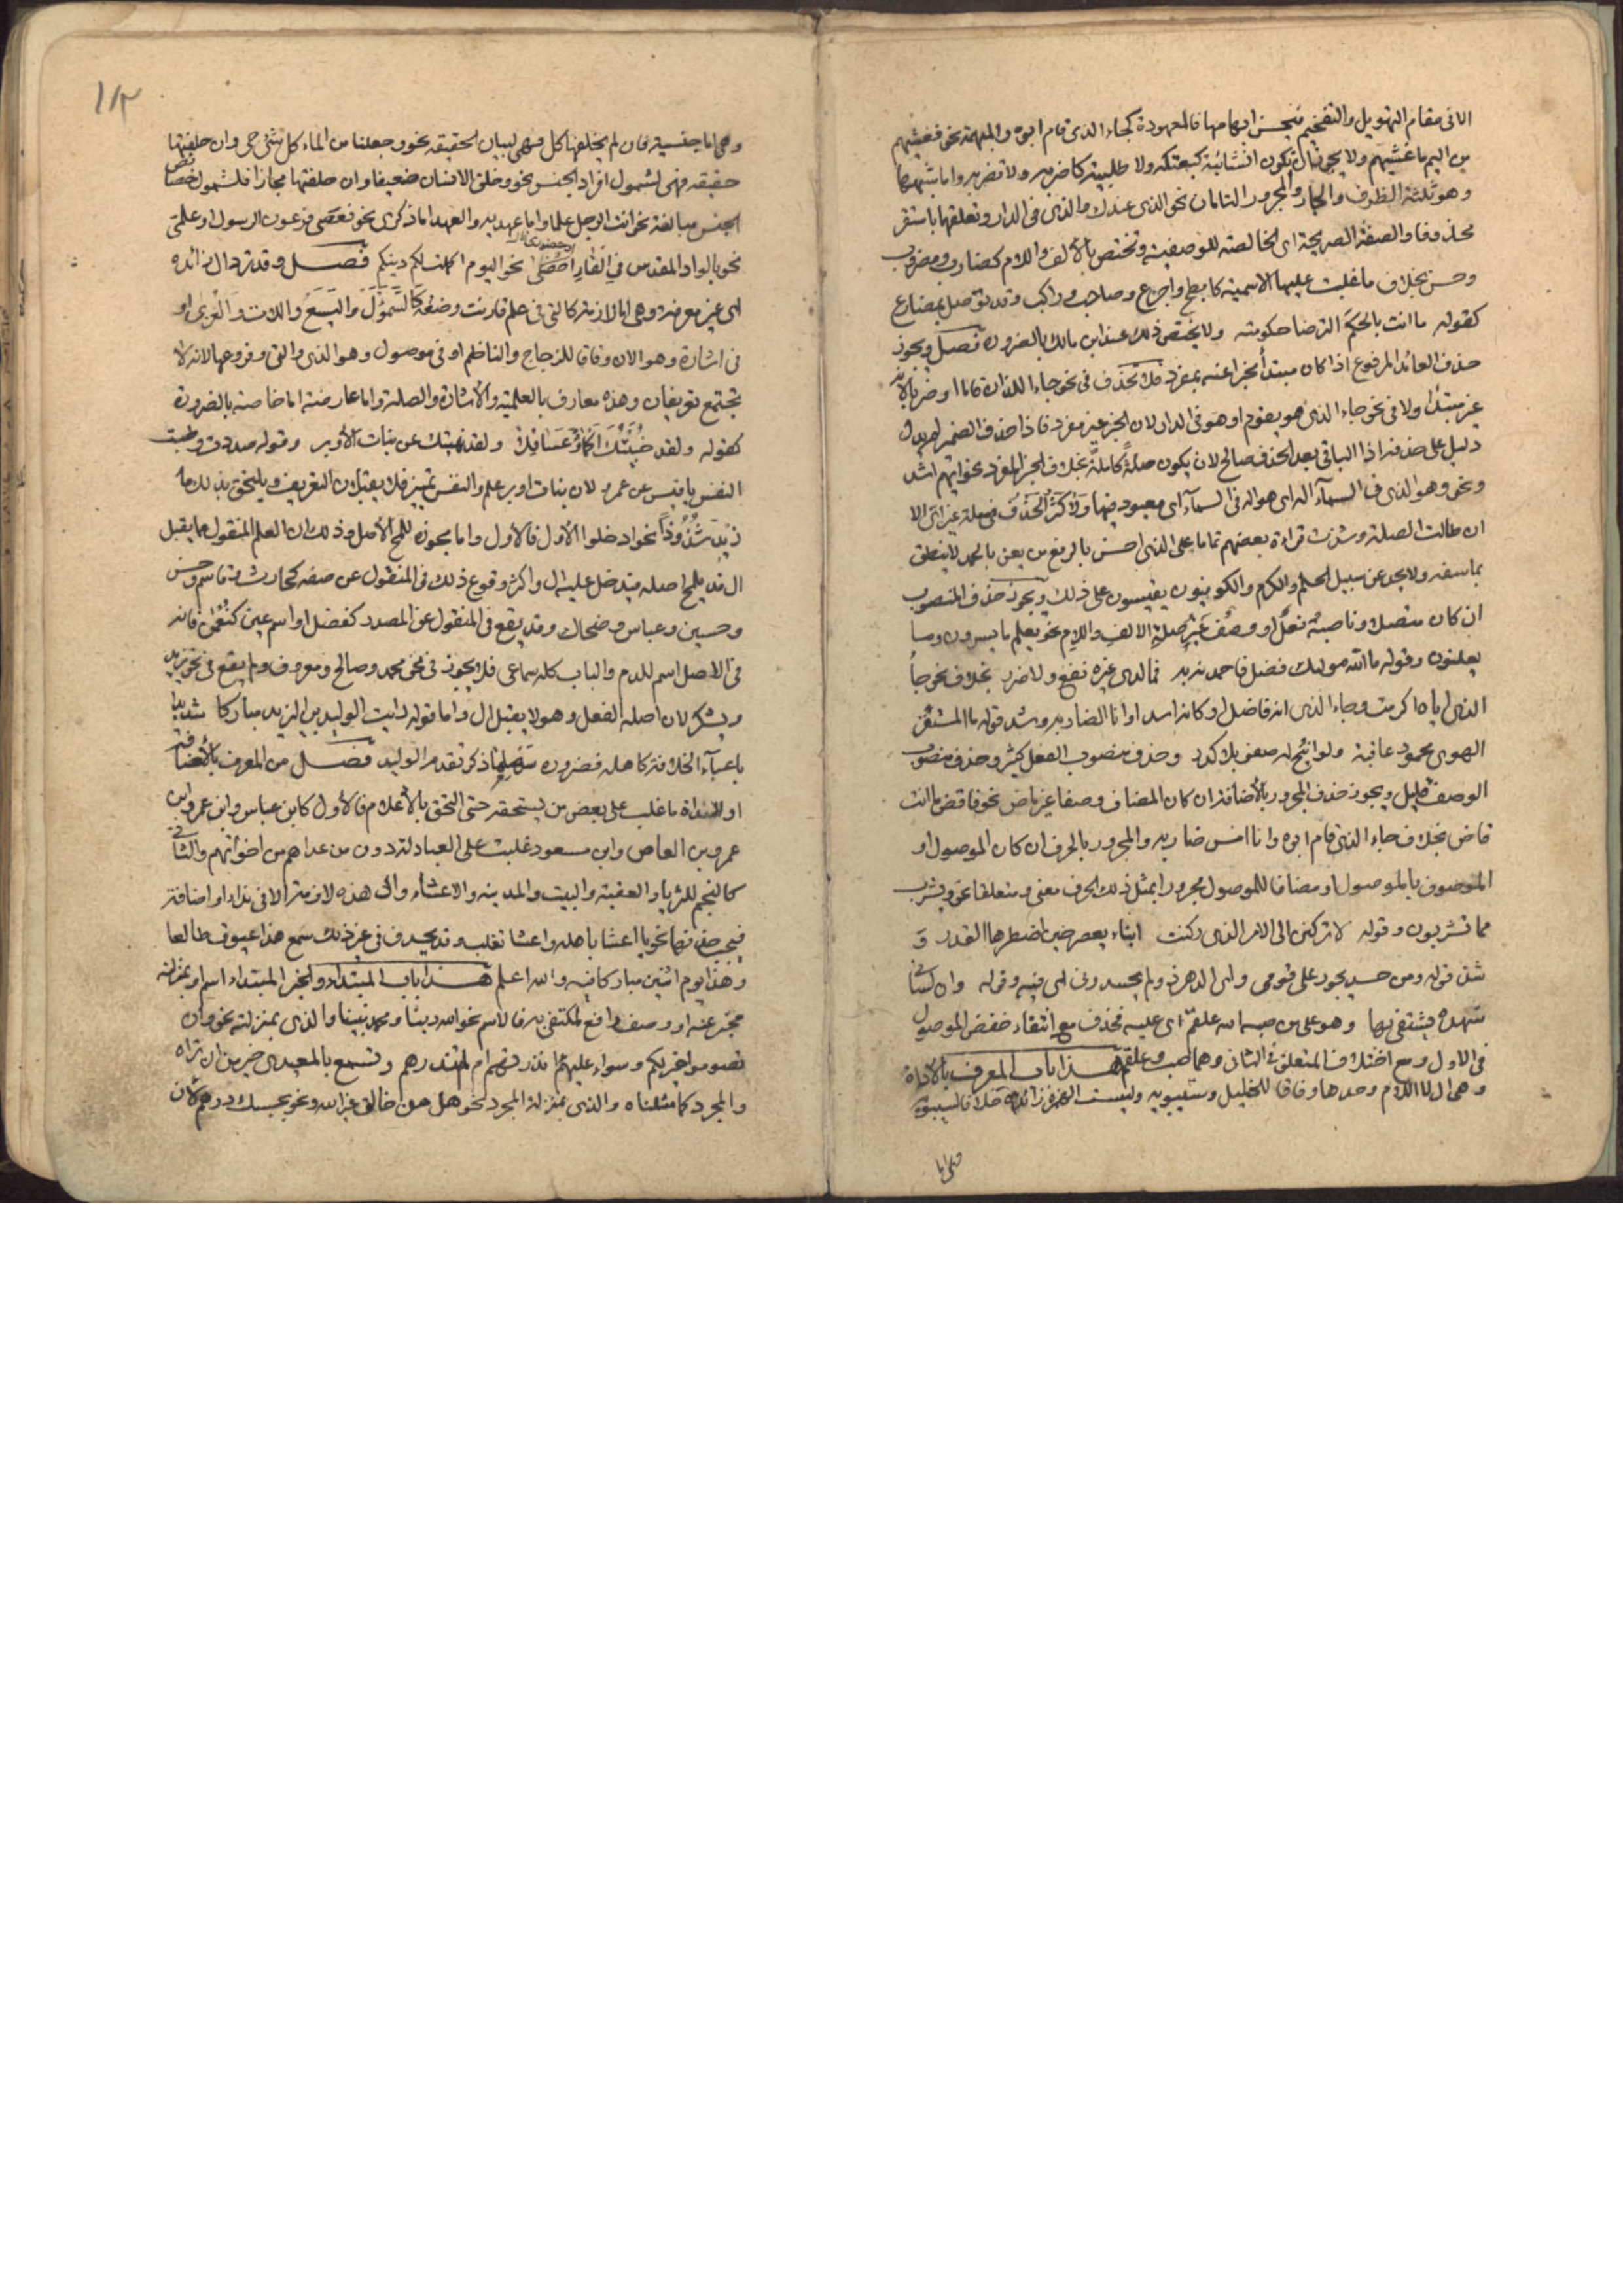 الا فى مقام التهويل والتفخيم فيحسن ابهامها فالمعهودة كجاء الذى قام ابوه والمبهمة نحو فغشيهم
من اليم ما غشيهم ولا يجوز ان تكون انشائية كبعتكه ولا طلبية كاضربه ولا تضربه واما شبهها
وهو ثلثة الظرف والجار والمجرور التامان نحو الذى عندك والذى فى الدار وتعلقهما باستقر
محذوفا والصفة الصريحة اى الخالصة للوصفية وتختص بالالف واللام كضارب ومضروب
وحسن بخلاف ما غلبت عليها الاسمية كابطح واجرع وصاحب وراكب وقد توصل بمضارع
كقوله ما انت بالحكم الترضا حكومته ولا يختص ذلك عند ابن مالك بالضرورة فصل ويجوز
حذف العائد المرفوع اذا كان مبتدأ مخبرا عنه بمفرد فلا تحذف فى نحو جاء اللذان قاما او ضربا لانه
غير مبتدا ولا فى نحو جاء الذى هو يقوم او هو فى الدار لان الخبر غير مفرد فاذا حذف الضمير لم يدل
دليل على حذفه اذا الباقى بعد الحذف صالح لان يكون صلة كاملة بخلاف الخبر المفرد نحو ايهم اشد
ونحو وهو الذى فى السماء اله اى هو اله فى السماء اى معبود فيها ولا كثر الحذف فى صلة غير اى الا
ان طالت الصلة وشذت قراءة بعضهم تماما على الذى احسن بالرفع من يعن بالحمد لا ينطق
بما سفه ولا يحد عن سبيل الحلم والكرم والكوفيون يقيسون على ذلك ويجوز حذف المنصوب
ان كان متصلا وناصبه فعل او وصف غير صلة الالف واللام نحو يعلم ما يسرون وما
يعلنون وقوله ما الله موليك فضل فاحمدنه به فما لدى غيره نفع ولا ضرر بخلاف نحو جاء
الذى اياه اكرمت وجاء الذى انه فاضل او كانه اسد او انا الضاربه وشذ قوله ما المستفز
الهوى محمود عاقبة ولو اتيح له صفو بلا كدر وحذف منصوب الفعل كثير وحذف منصوب
الوصف قليل ويجوز حذف المجرور بالاضافة ان كان المضاف وصفا غير ماض نحو فاقض ما انت
قاض بخلاف جاء الذى قام ابوه وانا امس ضاربه والمجرور بالحرف ان كان الموصول او
الموصوف بالموصول او مضافا للموصول مجرورا بمثل ذلك الحرف معنى ومتعلقا نحو ويشرب
مما تشربون وقوله لا تركنن الى الامر الذى ركنت ابناء يعصر حين اضطرها القدر و
شذ قوله ومن حسد يجور على قومى واى الدهر ذو لم يحسدونى اى فيه وقوله وان لسانى
شهدة يشتفى بها وهو على من صبه الله علقم اى عليه فحذف مع انتفاء خفض الموصول
فى الاول ومع اختلاف المتعلق فى الثانى وهما صب وعلقم هذا باب المعرف بالاداة
وهى ال لا اللام وحدها وفاقا للخليل وسيبويه وليست الهمزة زائدة خلافا لسيبويه
وهى اما
١١٢
وهى اما جنسية فان لم يخلفها كل فهى لبيان الحقيقة نحو وجعلنا من الماء كل شئ حى وان خلفتها
حقيقة فهى لشمول افراد الجنس نحو وخلق الانسان ضعيفا وان خلفتها مجازا فلشمول خصائص
الجنس مبالغة نحو انت الرجل علما واما عهدية والعهد اما ذكرى نحو فعصى فرعون الرسول او علمى
نحو بالواد المقدس اذ هما فى الغار او حضورى نحو اليوم اكملت لكم دينكم فصل وقد ترد ال زائدة
اى غير معرفة وهى اما لازمة كالتى فى علم قارنت وضعه كالسموأل واليسع واللات والعزى او
فى اشارة وهو الان وفاقا للزجاج والناظم او فى موصول وهو الذى والتى وفروعهما لانه لا
تجتمع تعريفان وهذه معارف بالعلمية والاشارة والصلة واما عارضة اما خاصة بالضرورة
كقوله ولقد جنيتك اكمؤا وعساقلا ولقد نهيتك عن بنات الاوبر وقوله صددت وطبت
النفس يا قيس عن عمرو لان بنات اوبر علم والنفس تمييز فلا يقبلان التعريف ويلتحق بذلك ما
زيد شذوذا نحو ادخلوا الاول فالاول واما مجوزة للمح الاصل وذلك ان العلم المنقول مما يقبل
ال قد يلمح اصله فيدخل عليه ال واكثر وقوع ذلك فى المنقول عن صفة كحارث وقاسم وحسن
وحسين وعباس وضحاك وقد يقع فى المنقول عن المصدر كفضل او اسم عين كنعمان فانه
فى الاصل اسم للدم والباب كله سماعى فلا يجوز فى نحو محمد وصالح ومعروف ولم يقع فى نحو يزيد
ويشكر لان اصله الفعل وهو لا يقبل ال واما قوله رايت الوليد بن اليزيد مباركا شديدا
باعباء الخلافة كاهله فضرورة سهلها ذكر تقدم الوليد فصل من المعرف بالاضافة
او الاداة ما غلب على بعض من يستحقه حتى التحق بالاعلام فالاول كابن عباس وابن عمر وابن
عمرو بن العاص وابن مسعود غلبت على العبادلة دون من عداهم من اخوانهم والثانى
كالنجم للثريا والعقبة والبيت والمدينة والاعشاء وال هذه لازمة الا فى نداء او اضافة
فيجب حذفها نحو يا اعشا باهله واعشا تغلب وقد يحذف فى غير ذلك سمع هذا عيوق طالعا
وهذا يوم اثنين مباركا فيه والله اعلم هذا باب المبتداء والخبر المبتداء اسم او بمنزلته
مخبر عنه او وصف رافع لمكتفى به فالاسم نحو الله ربنا ومحمد نبينا والذى بمنزلته نحو وان
تصوموا خير لكم وسواء عليهم ءانذرتهم ام لم تنذرهم وتسمع بالمعيدى خير من ان تراه
والمجرد كما مثلناه والذى بمنزلة المجرد نحو هل من خالق غير الله ونحو بحسبك درهم لان